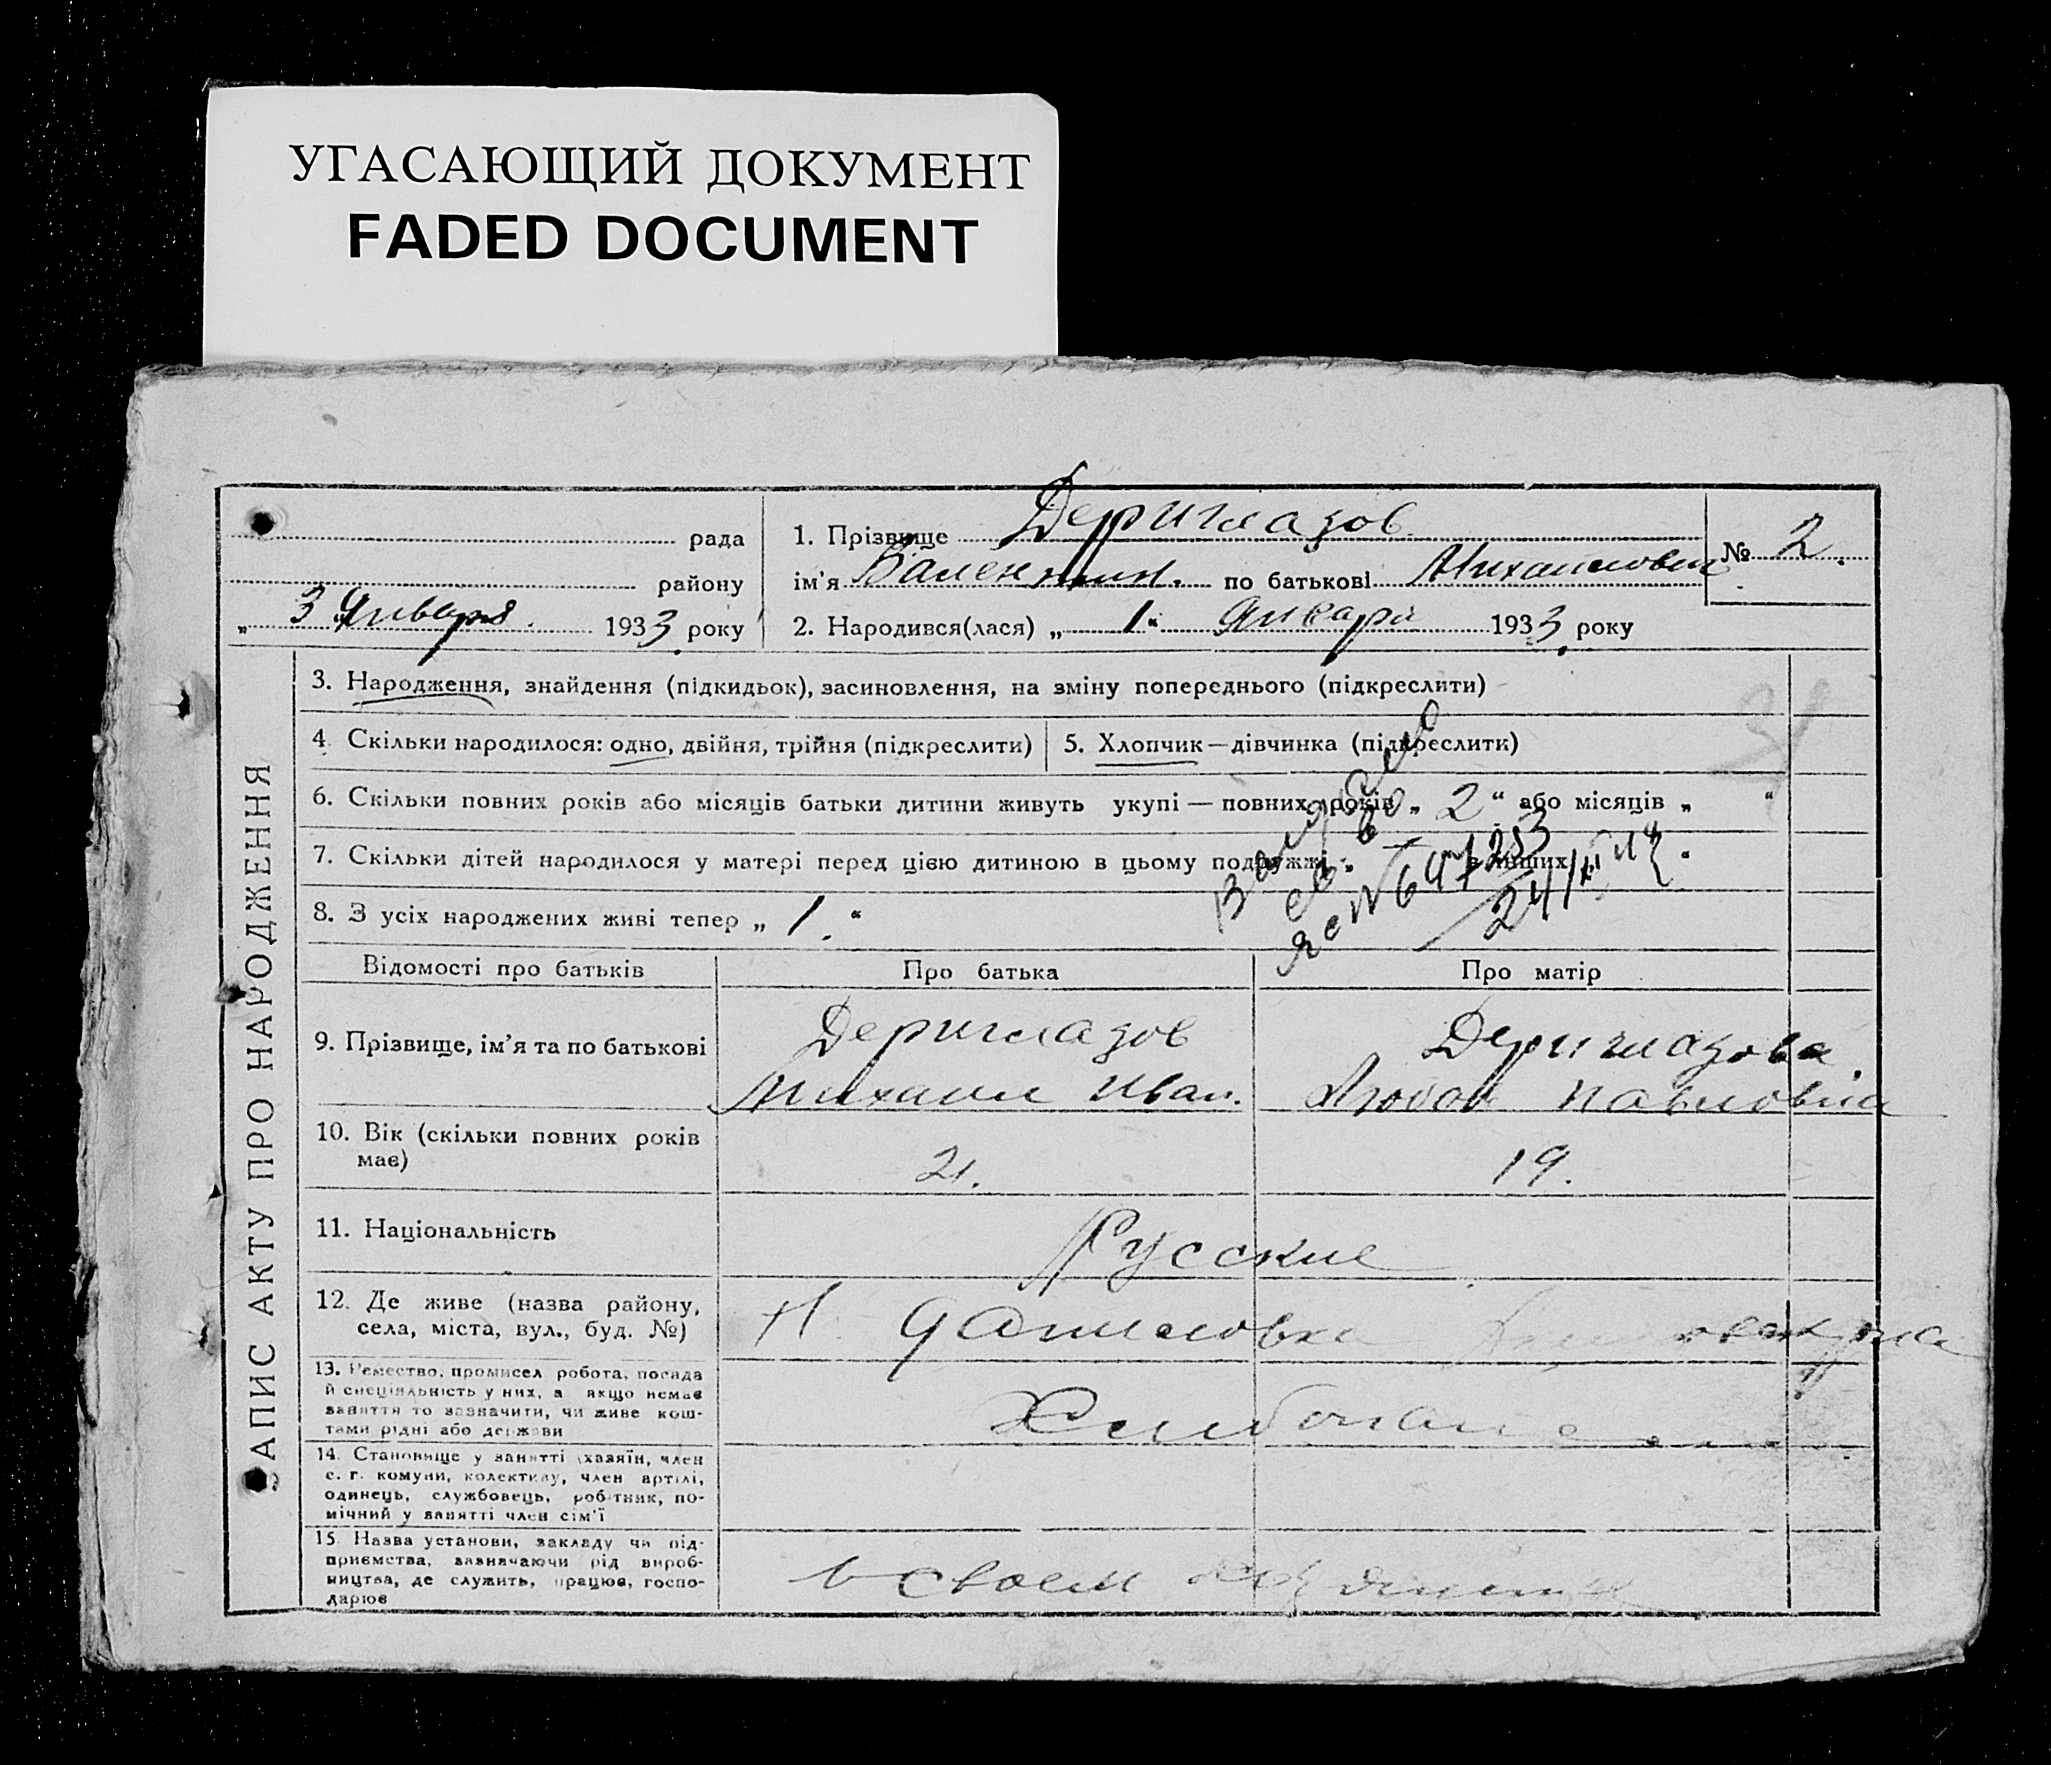 УГАСАЮЩИЙ ДОКУМЕНТ
FADED DOCUMENT
рада
району
„ 3 Января 1933 року
1. Прізвище Дериглазов
ім'я Валентин. по батькові Михайлович
№ 2.
2. Народився(лася) „ 1 “ Января 1933 року
ЗАПИС АКТУ ПРО НАРОДЖЕННЯ
3. Народження, знайдення (підкидьок), засиновлення, на зміну попереднього (підкреслити)
4. Скільки народилося: одно, двійня, трійня (підкреслити)
5. Хлопчик — дівчинка (підкреслити)
6. Скільки повних років або місяців батьки дитини живуть укупі — повних років „ 2 “ або місяців „ “
7. Скільки дітей народилося у матері перед цією дитиною в цьому подружжі „ — в інших “
8. З усіх народжених живі тепер „ 1. “
Выдано
св во
Відомості про батьків
Про батька
Про матір
9. Прізвище, ім'я та по батькові
Дериглазов
Михаил Иван.
Дериглазова
Любов Павловна
10. Вік (скільки повних років має)
21.
19.
11. Національність
Русские
12. Де живе (назва району, села, міста, вул., буд. №)
Даниловка
13. Ремество, промисел робота, посада
й спеціяльність у них, а якщо немає
заняття то зазначити, чи живе кош-
тами рідні або держави
14. Становище у занятті (хазяїн, член
с. г. комуни, колективу, член артілі,
одинець, службовець, робітник, по-
мічний у занятті член сім'ї
15. Назва установи, закладу чи під-
приємства, зазначаючи рід вироб-
ництва, де служить, працює, госпо-
дарює
в своем